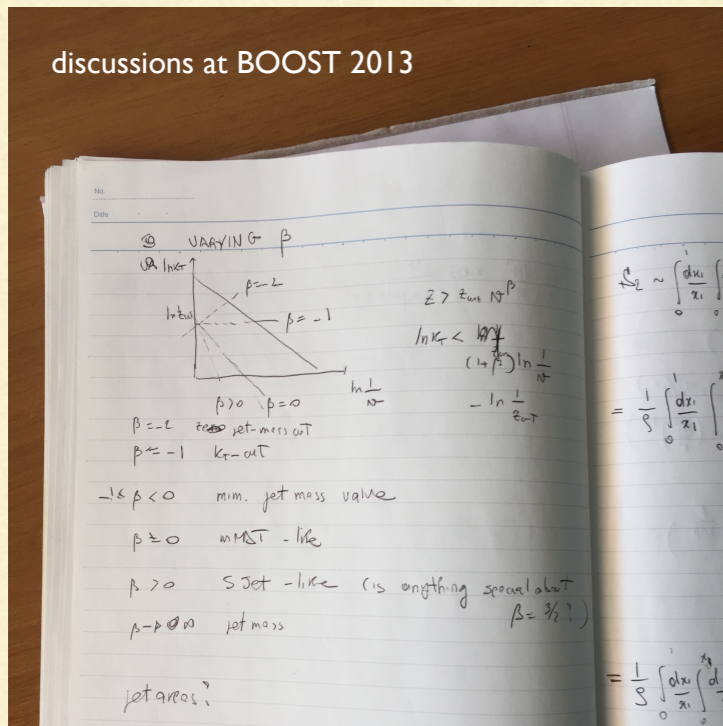 discussions at BOOST 2013
No.
Date
VARYING β
ln kT
β=-2
ln zcut
β=-1
ln 1/ϑ
β>0 β=0
z > zcut ϑ^β
ln kT <
(1+β) ln 1/ϑ
- ln 1/zcut
β=-2 jet-mass cut
β=-1 kT-cut
-1< β<0 min. jet mass value
β≃0 mMDT-like
β>0 SJet-like (is anything special about
β=3/2?)
β→∞ jet mass
jet areas?
∫ dx₁/x₁
= 1/ρ ∫ dx₁/x₁
= 1/ρ ∫ dx₁/x₁ ∫ d